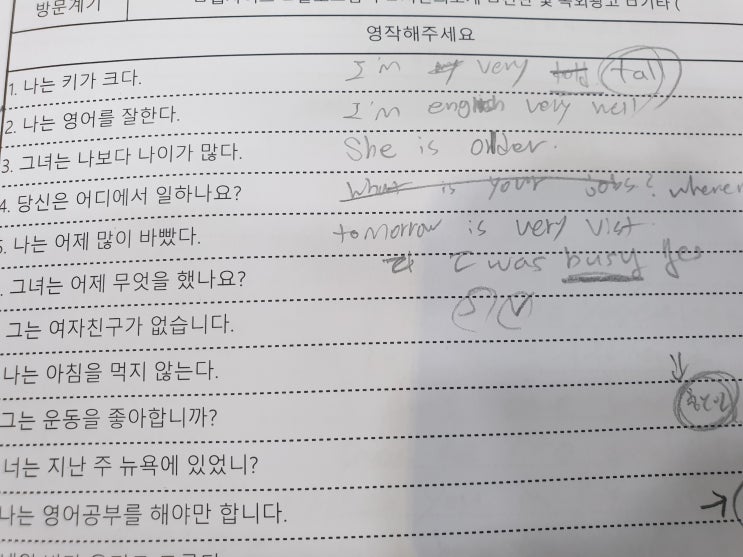 방문계기
영작해주세요
1. 나는 키가 크다. I'm very tall
2. 나는 영어를 잘한다. I'm english very well
3. 그녀는 나보다 나이가 많다. She is older.
4. 당신은 어디에서 일하나요? What is your jobs? where
5. 나는 어제 많이 바빴다. tomorrow is very vist.
I was busy yes
그녀는 어제 무엇을 했나요?
S V
그는 여자친구가 없습니다.
나는 아침을 먹지 않는다.
그는 운동을 좋아합니까?
너는 지난 주 뉴욕에 있었니?
나는 영어공부를 해야만 합니다.